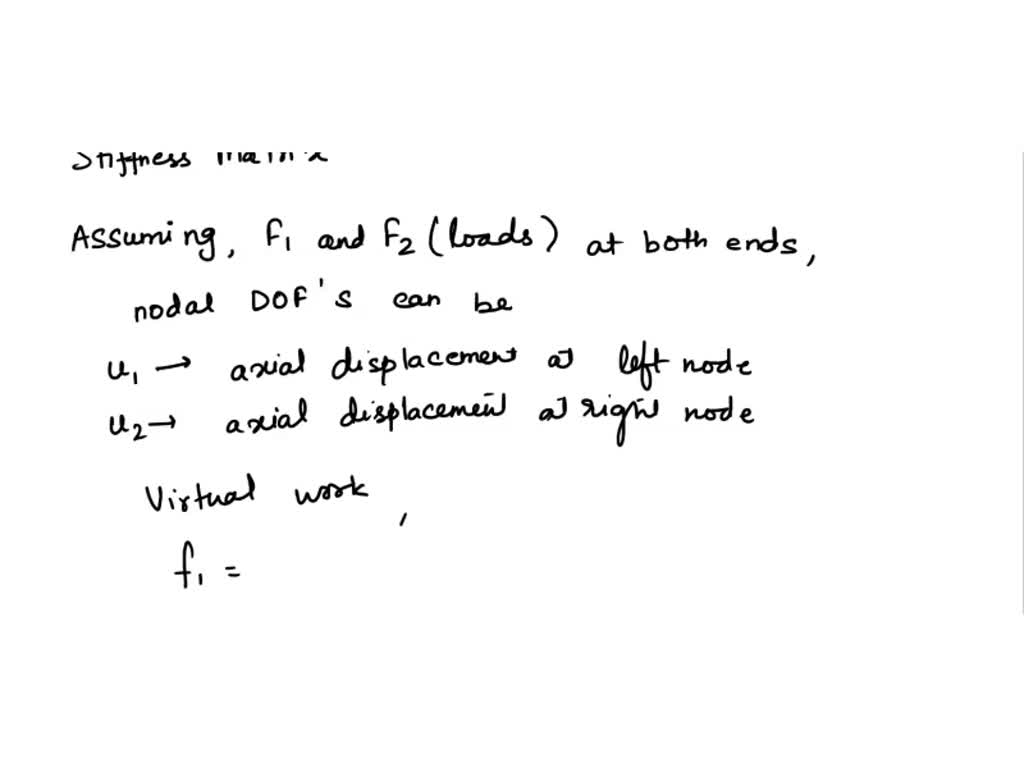 Stiffness matrix
Assuming, F1 and F2 (loads) at both ends,
nodal DOF's can be
u1 → axial displacement at left node
u2 → axial displacement at right node
Virtual work,
f1 =